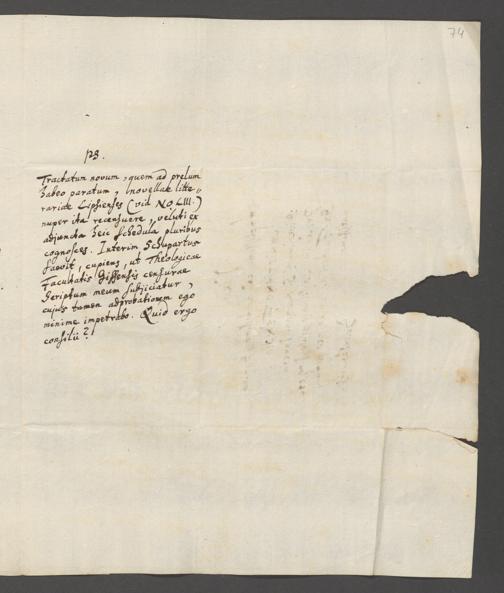 74
PS.
Tractatum novum, quem ad prelum
habeo paratum, Novellae litte-
rariae Lipsienses (vid. No. LIII.)
nuper ita recensuere, veluti ex
adjuncta heic schedula pluribus
cognosces. Interim Schupartus
saevit, cupiens, ut Theologicae
Facultatis Gissensis censurae
scriptum meum subjiciatur,
cujus tamen adprobationem ego
minime impetrabo. Quid ergo
consilii?